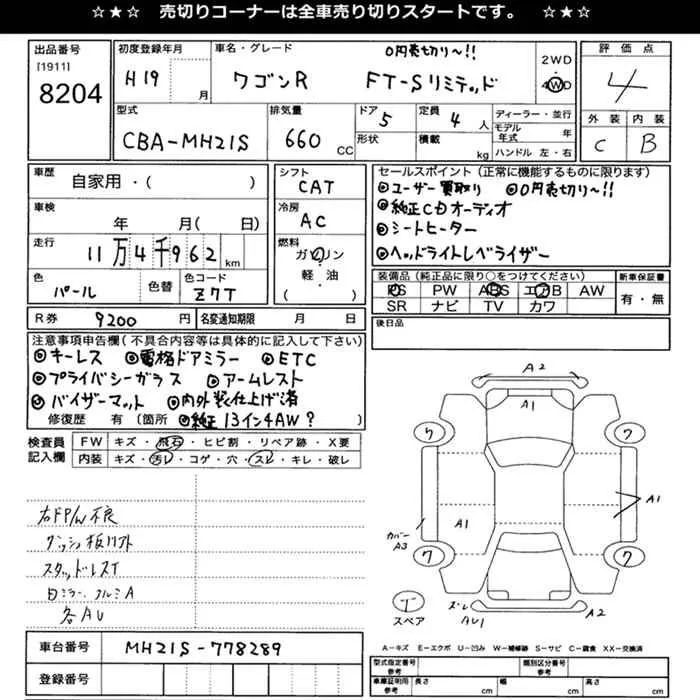 ☆★☆ 売切りコーナーは全車売り切りスタートです。 ☆★☆
出品番号
[1911]
8204
初度登録年月
H19 月
車名・グレード
0円売切り〜!!
ワゴンR FT-Sリミテッド
2WD
4WD
評価点
4
外装 内装
C B
型式
CBA-MH21S
排気量
660 CC
ドア
5
形状
定員
4 人
積載
kg
ディーラー・並行
モデル年式 年
ハンドル 左・右
車歴
自家用・( )
シフト
CAT
車検
年 月( 日)
冷房
AC
走行
11万4千962 km
燃料
ガソリン
軽・油
( )
色
パール
色替
色コード
Z7T
R券 9200 円
名変通知期限 月 日
セールスポイント(正常に機能するものに限ります)
◎ユーザー買取り ◎0円売切り〜!!
◎純正CDオーディオ
◎シートヒーター
◎ヘッドライトレベライザー
装備品(純正品に限り○をつけてください)
PS PW ABS エアB AW
SR ナビ TV カワ
新車保証書
有・無
後日品
注意事項申告欄(不具合内容等は具体的に記入して下さい)
◎キーレス ◎電格ドアミラー ◎ETC
◎プライバシーガラス ◎アームレスト
◎バイザーマット ◎内外装仕上げ済
修復歴 有(箇所 ◎純正13インチAW?
検査員記入欄
FW キズ・飛石・ヒビ割・リペア跡・X要
内装 キズ・汚レ・コゲ・穴・スレ・キレ・破レ
右FP/W不良
ダッシュ板リフト
スタッドレスT
各AU
A2
A1
ワ
ワ
A1
A1
カバー
A3
ワ
ワ
T
スペア
ズレ
AU1
A2
A-キズ E-エクボ U-凹み W-補修跡 S-サビ C-腐食 XX-交換済
車台番号
MH21S-778289
登録番号
型式指定番号 参考
類別区分番号 参考
車庫証明用 参考
長さ cm
幅 cm
高さ cm